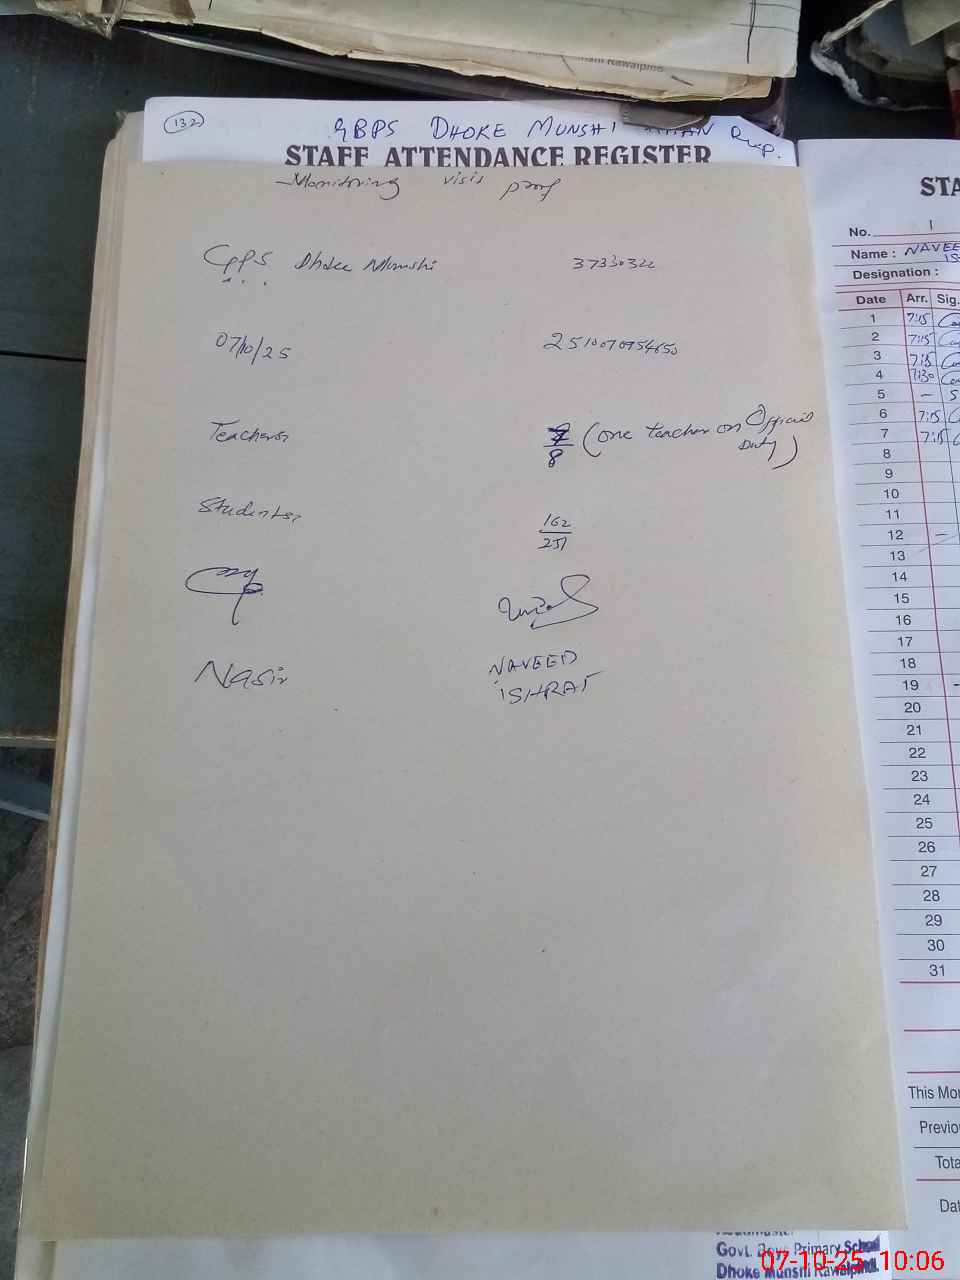 ni Rawalpindi
132
GBPS DHOKE MUNSHI KHAN Rwp.
STAFF ATTENDANCE REGISTER
Monitoring visit proof
GPPS Dhoke Munshi 37330322
07/10/25 2510070954650
Teachers 7/8 (one teacher on Official Duty)
Students 162/251
Nasir
NAVEED
ISHRAT
STA
No. 1
Name : NAVEE
IS
Designation :
Date Arr. Sig.
1 7:15
2 7:15
3 7:15
4 7:30
5 — S
6 7:15
7 7:15
8
9
10
11
12 —
13
14
15
16
17
18
19 —
20
21
22
23
24
25
26
27
28
29
30
31
This Mo
Previo
Tota
Dat
Govt. Boys Primary School
Dhoke Munshi Rawalpindi.
07-10-25 10:06